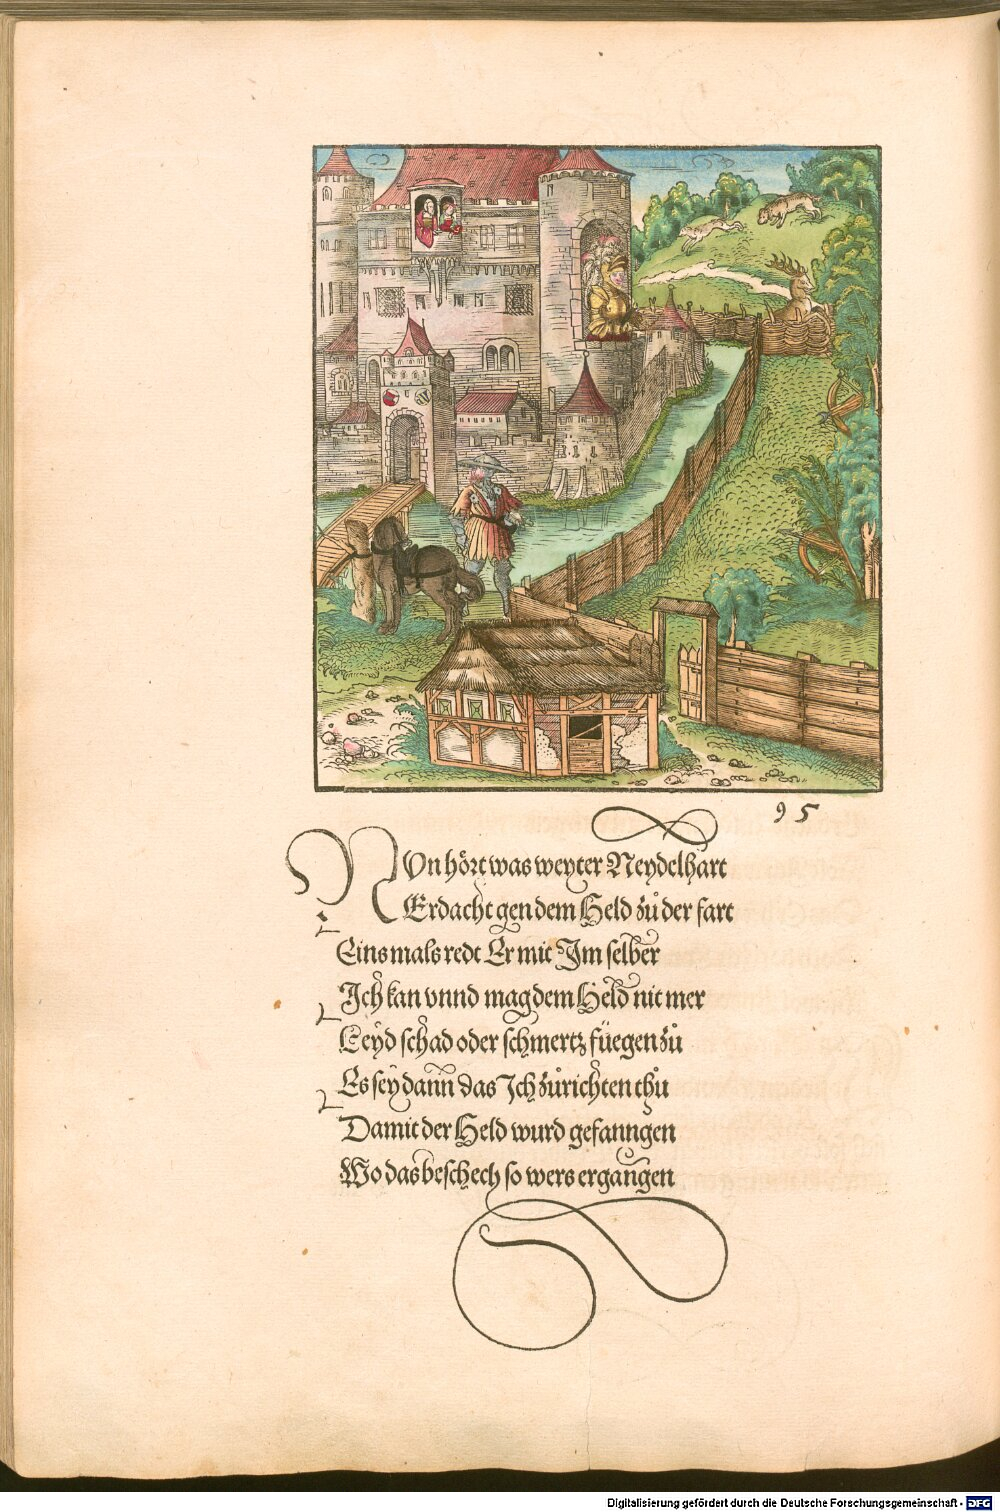 95
NOn hört was weyter Neydelhart
Erdacht gen dem Held zů der fart
Eins mals redt Er mit Im selber
Ich kan vnnd mag dem Held nit mer
Leyd schad oder schmertz füegen zů
Es sey dann das Ich zůrichten thů
Damit der Held wurd gefanngen
Wo das beschech so wers ergangen
Digitalisierung gefördert durch die Deutsche Forschungsgemeinschaft - DFG